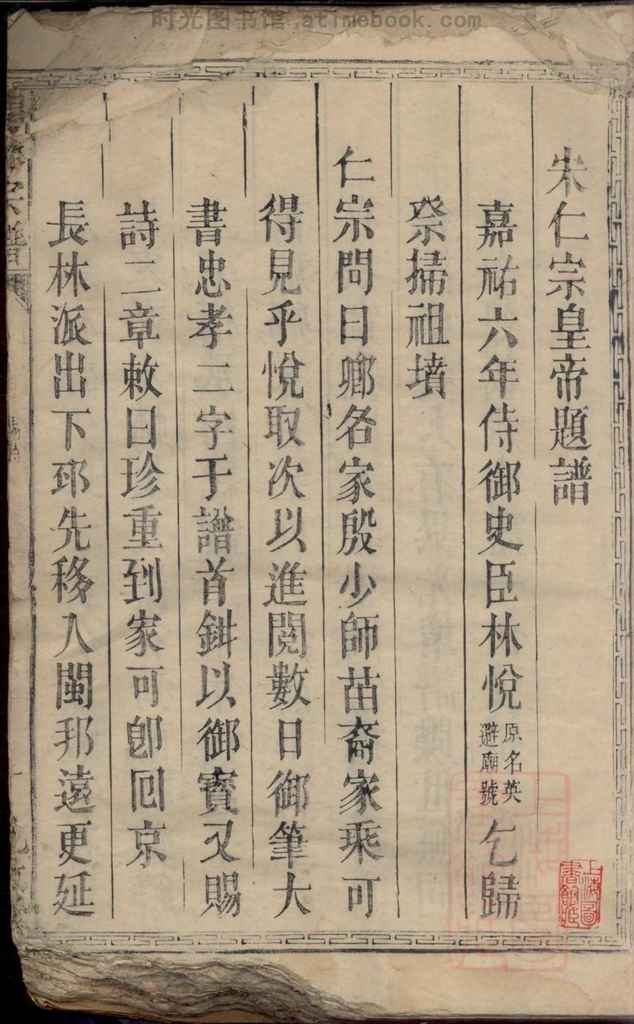 时光图书馆.atimebook.com
宋仁宗皇帝題譜
嘉祐六年侍御史臣林悅原名英避廟號乞歸
祭掃祖墳
仁宗問曰卿名家殷少師苗裔家乘可
得見乎悅取次以進閱數日御筆大
書忠孝二字于譜首鈐以御寶又賜
詩二章敕曰珍重到家可卽回京
長林派出下邳先移入閩邦遠更延
上海圖書館藏